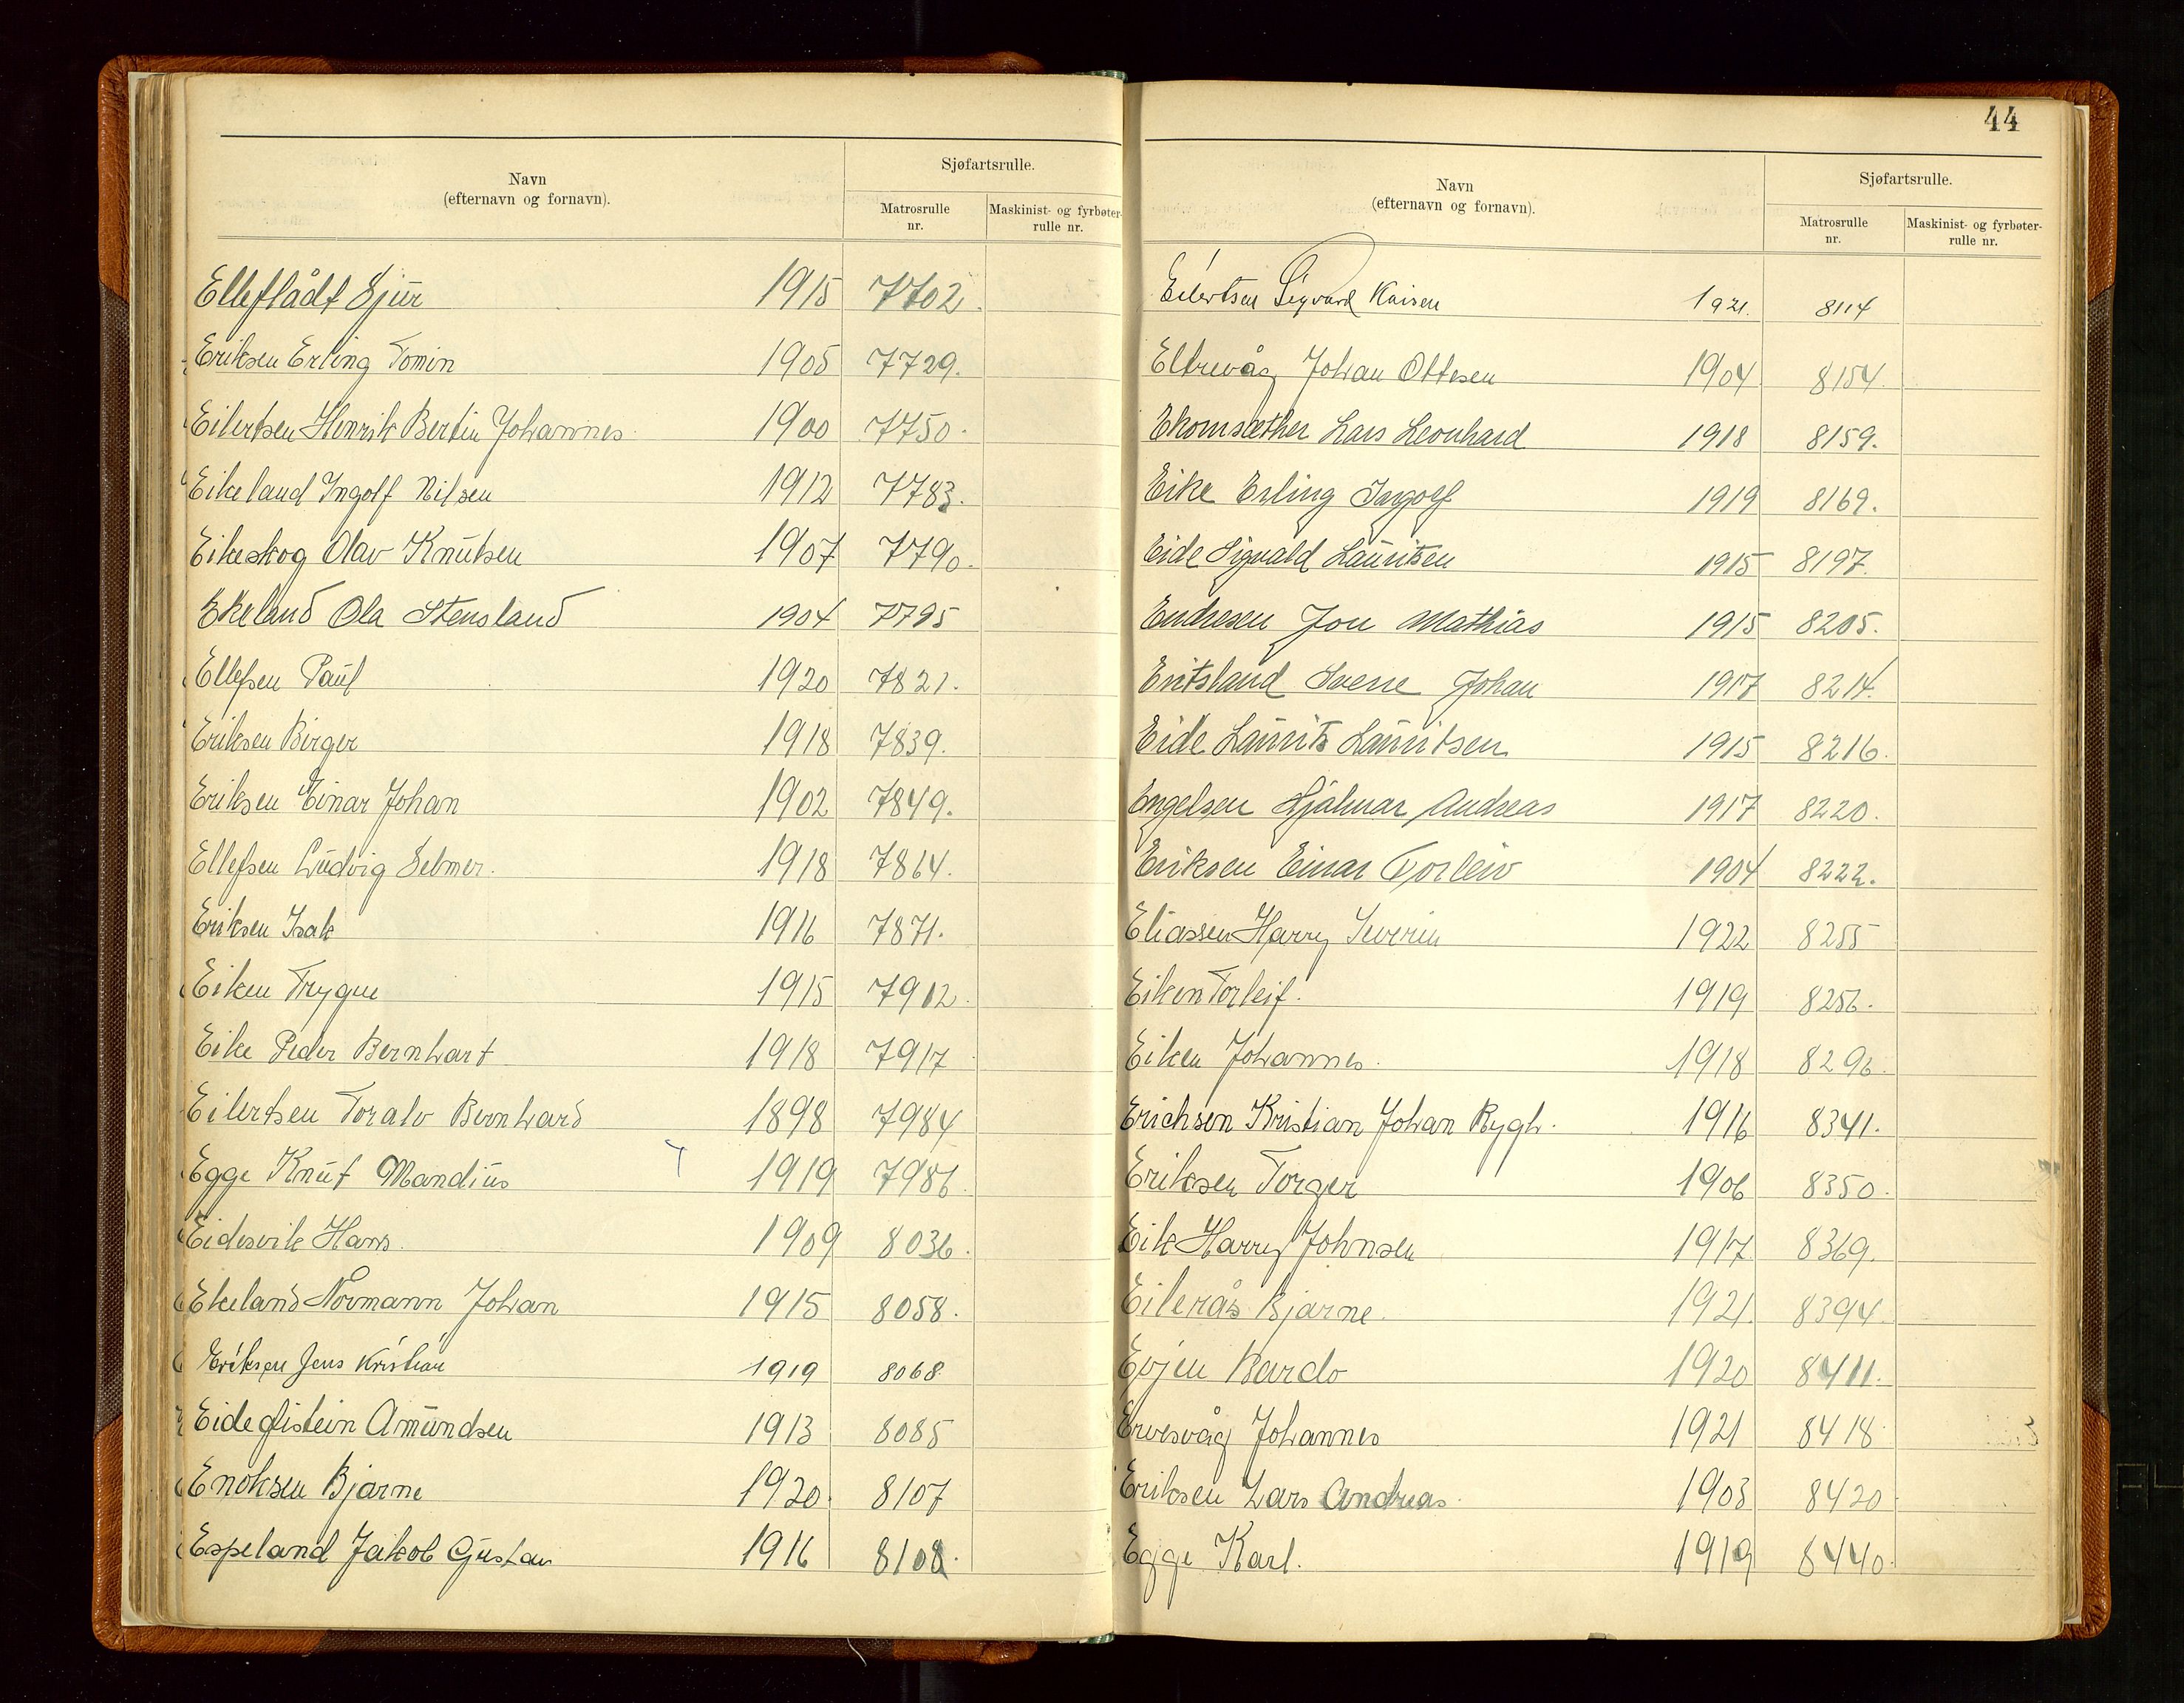 44
Navn
(efternavn og fornavn).
Sjøfartsrulle.
Matrosrulle
nr.
Maskinist- og fyrbøter-
rulle nr.
Elleflådt Sjur 1915 7702.
Eriksen Erling Tomin 1905 7729.
Eilertsen Henrik Bertin Johannes 1900 7750.
Eikeland Ingolf Nilsen 1912 7783.
Eikeskog Olav Knutsen 1907 7790.
Ekeland Ola Stensland 1904 7795
Ellefsen Paul 1920 7821.
Eriksen Birger 1918 7839.
Eriksen Einar Johan 1902 7849.
Ellefsen Ludvig Selmer. 1918 7864.
Eriksen Isak 1916 7871.
Eiken Trygve 1915 7912.
Eike Peder Bernhart 1918 7917
Eilertsen Toralv Bernhard 1898 7984
Egge Knut Mandius 1919 7986.
Eidesvik Hans. 1909 8036.
Ekeland Normann Johan 1915 8058.
Eriksen Jens Kristian 1919 8068
Eide Øistein Amundsen 1913 8085
Enoksen Bjarne 1920 8107
Espeland Jakob Gustav 1916 8108.
Navn
(efternavn og fornavn).
Sjøfartsrulle.
Matrosrulle
nr.
Maskinist- og fyrbøter-
rulle nr.
Eilertsen Sigvard Kaisen 1921. 8114
Eltrevåg Johan Ottesen 1904 8154.
Ekornsæther Lars Leonhard 1918 8159.
Eike Erling Ingolf 1919 8169.
Eide Sigvald Lauritsen 1915 8197.
Endresen Jon Mathias 1915 8205.
Eritsland Sverre Johan 1917 8214.
Eide Laurits Lauritsen 1915 8216.
Engelsen Hjalmar Andreas 1917 8220.
Eriksen Einar Torleiv 1904 8222.
Eliassen Harry Severin 1922 8255
Eiken Torleif. 1919 8256.
Eiken Johannes. 1918 8296.
Erichsen Kristian Johan Rygh. 1916 8341.
Eriksen Torger 1906 8350.
Eik Harry Johnsen 1917. 8369.
Eikerås Bjarne. 1921. 8394.
Evjen Bardo 1920 8411.
Ervesvåg Johannes 1921 8418
Eriksen Lars Andreas. 1903 8420
Egge Karl. 1919 8440.